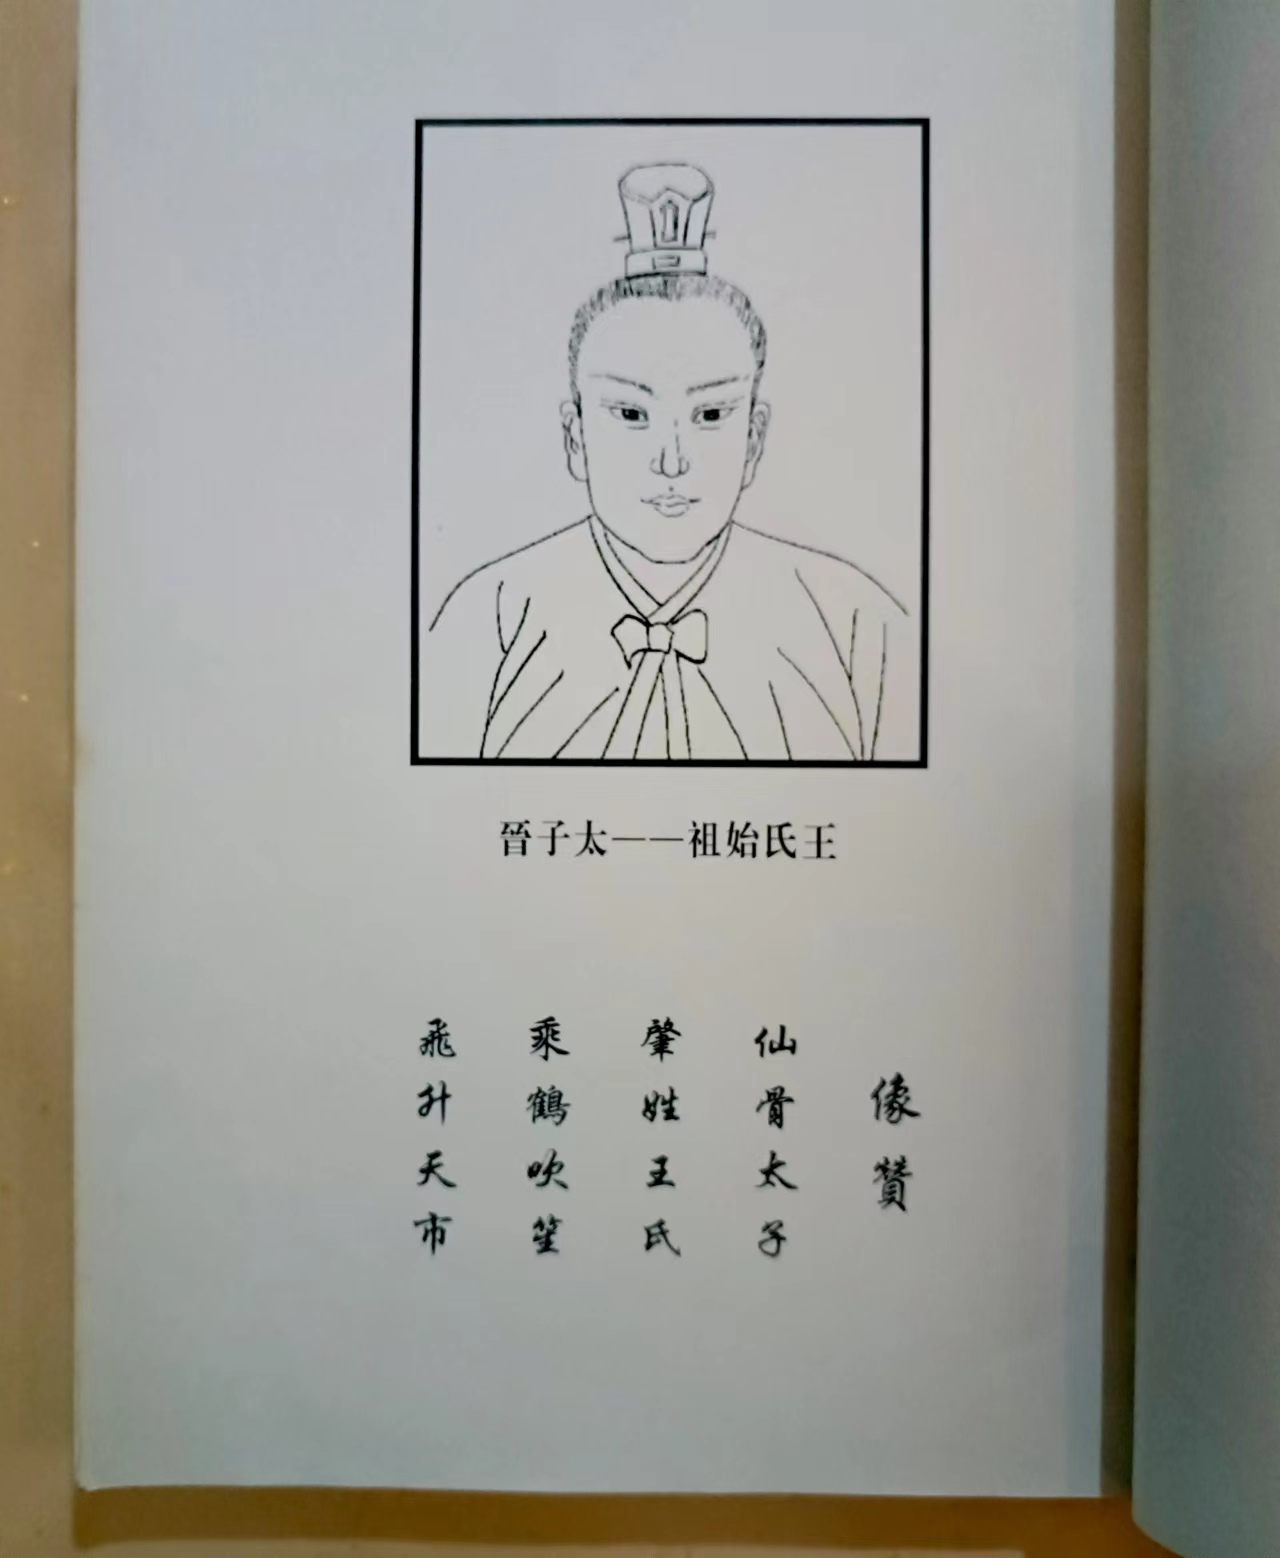 王氏始祖——太子晉
像贊
仙骨太子
肇姓王氏
乘鶴吹笙
飛升天市